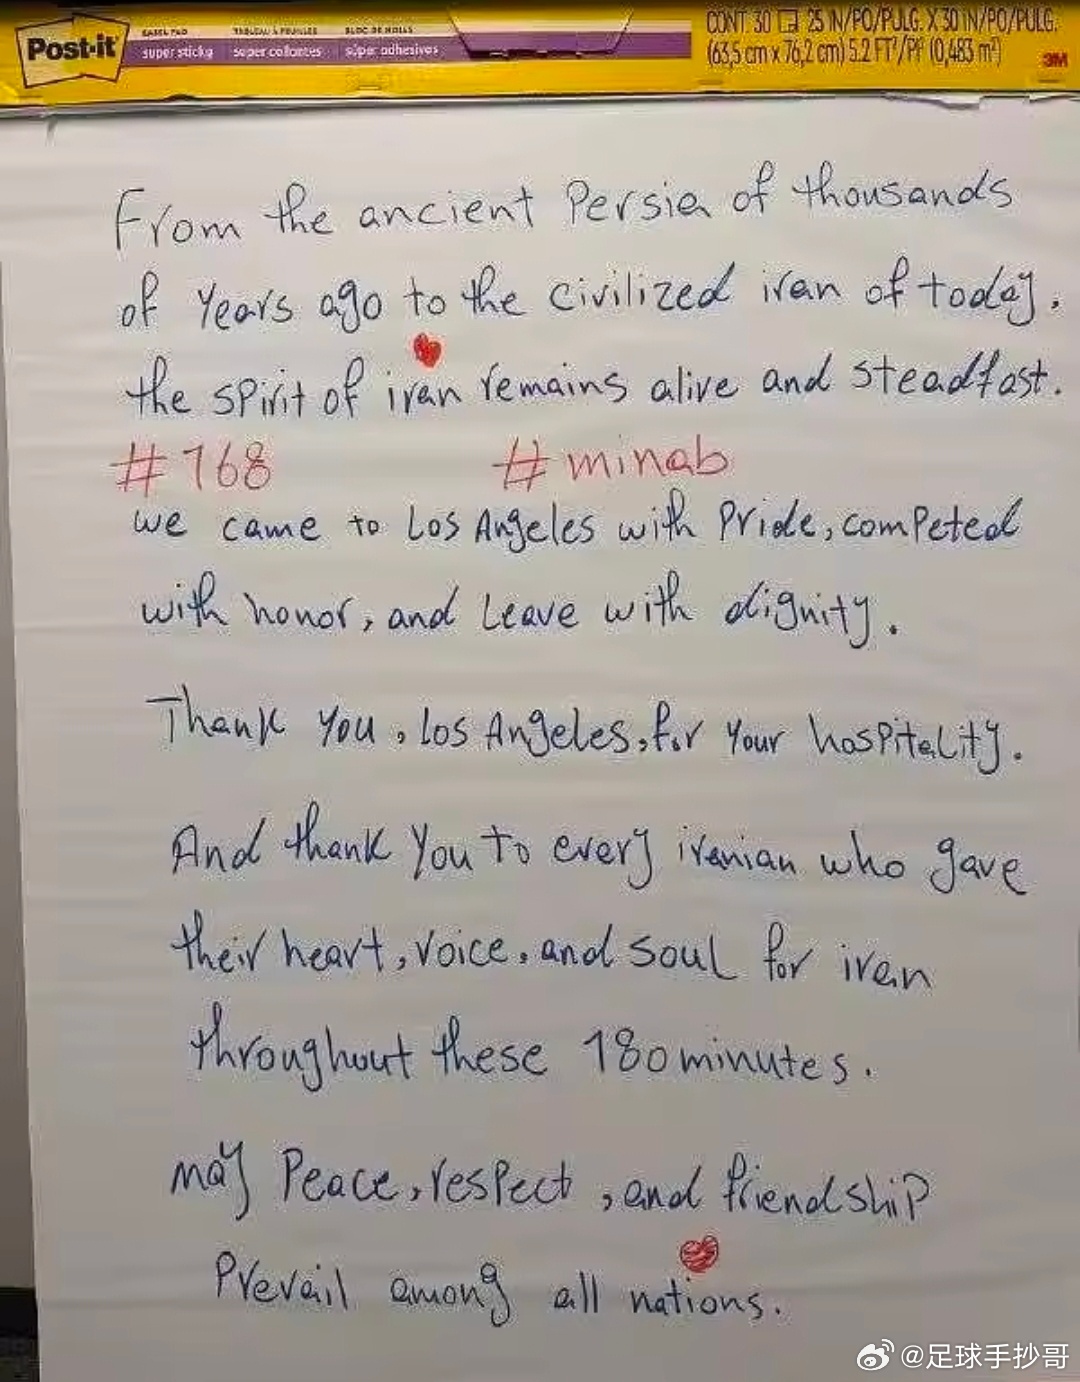 Post-it
EASEL PAD
super sticky
TABLEAU À FEUILLES
super collantes
BLOC DE HOJAS
súper adhesivas
CONT. 30 25 IN/PO/PULG. X 30 IN/PO/PULG.
(63,5 cm x 76,2 cm) 5.2 FT²/PI² (0,483 m²)
3M
From the ancient Persia of thousands
of Years ago to the civilized iran of today.
the spirit of iran remains alive and steadfast.
#168 #minab
we came to Los Angeles with Pride, competed
with honor, and Leave with dignity.
Thank You, Los Angeles, for Your hospitality.
And thank You to every iranian who gave
their heart, voice, and soul for iran
throughout these 180 minutes.
may Peace, respect, and friendship
Prevail among all nations.
@足球手抄哥